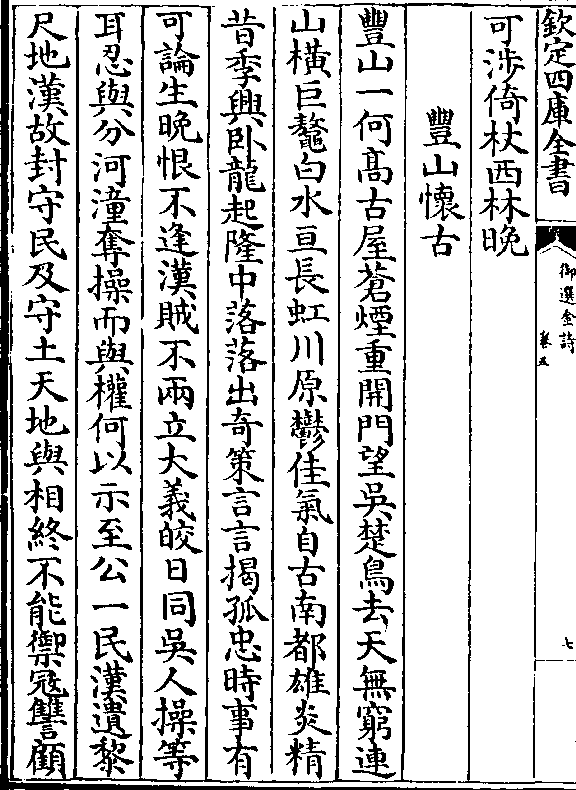 欽定四庫全書
御選金詩
卷五
七
可涉倚杖西林晚
豐山懷古
豐山一何高古屋蒼煙重開門望吳楚鳥去天無窮連
山橫巨鼇白水亘長虹川原鬱佳氣自古南都雄炎精
昔季興卧龍起隆中落落出奇策言言揭孤忠時事有
可論生晚恨不逢漢賊不兩立大義皎日同吳人操等
耳忍與分河潼奪操而與權何以示至公一民漢遺黎
尺地漢故封守民及守土天地與相終不能禦冦讐顧